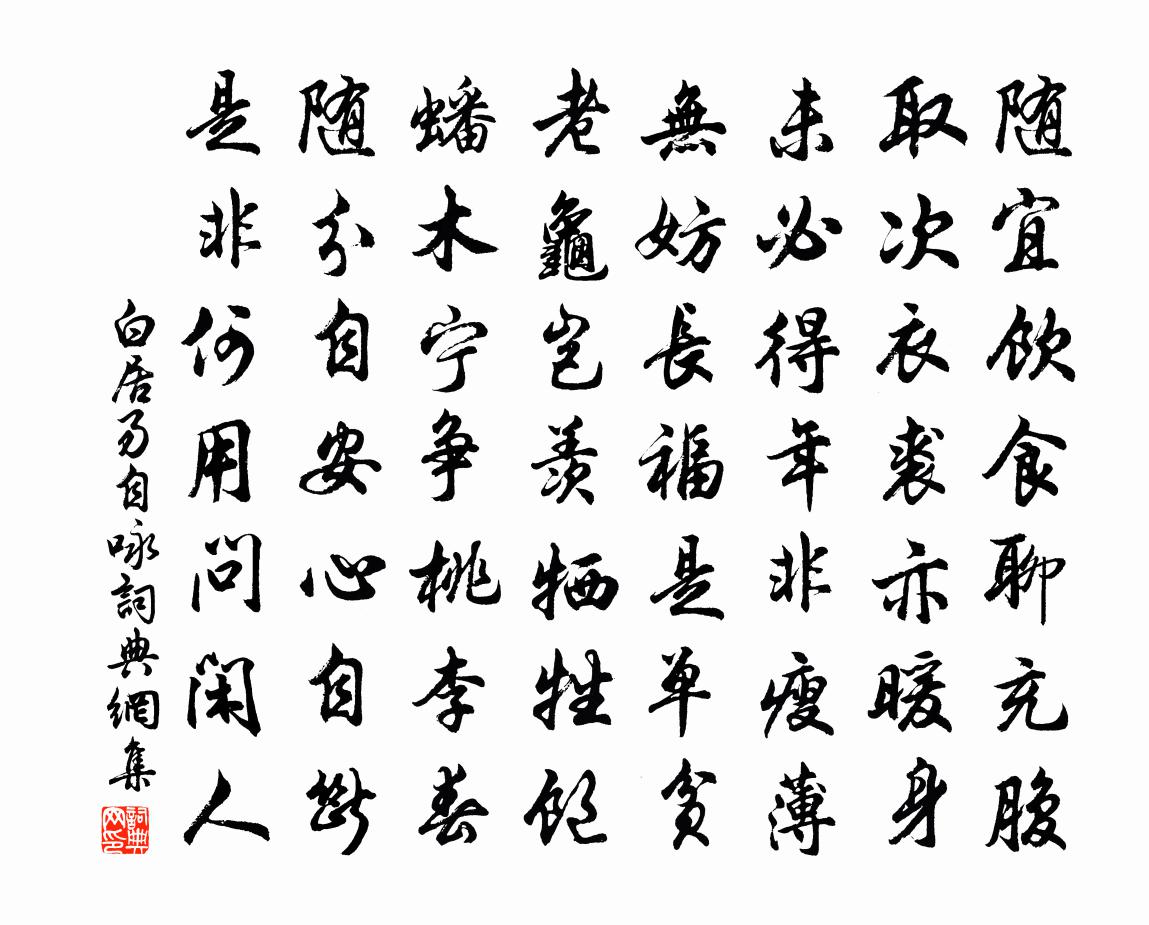 随宜飲食聊充腹
取次衣裘亦暖身
未必得年非瘦薄
無妨長福是单貧
老龜岂羨牺牲飽
蟠木宁争桃李春
随分自安心自断
是非何用問闲人
白居易自咏詞典網集
詞典网印